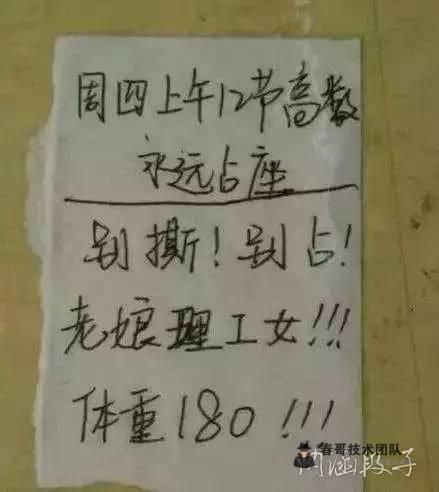 周四上午12节高数
永远占座
别撕！别占！
老娘理工女！！！
体重180！！！
春哥技术团队
内涵段子